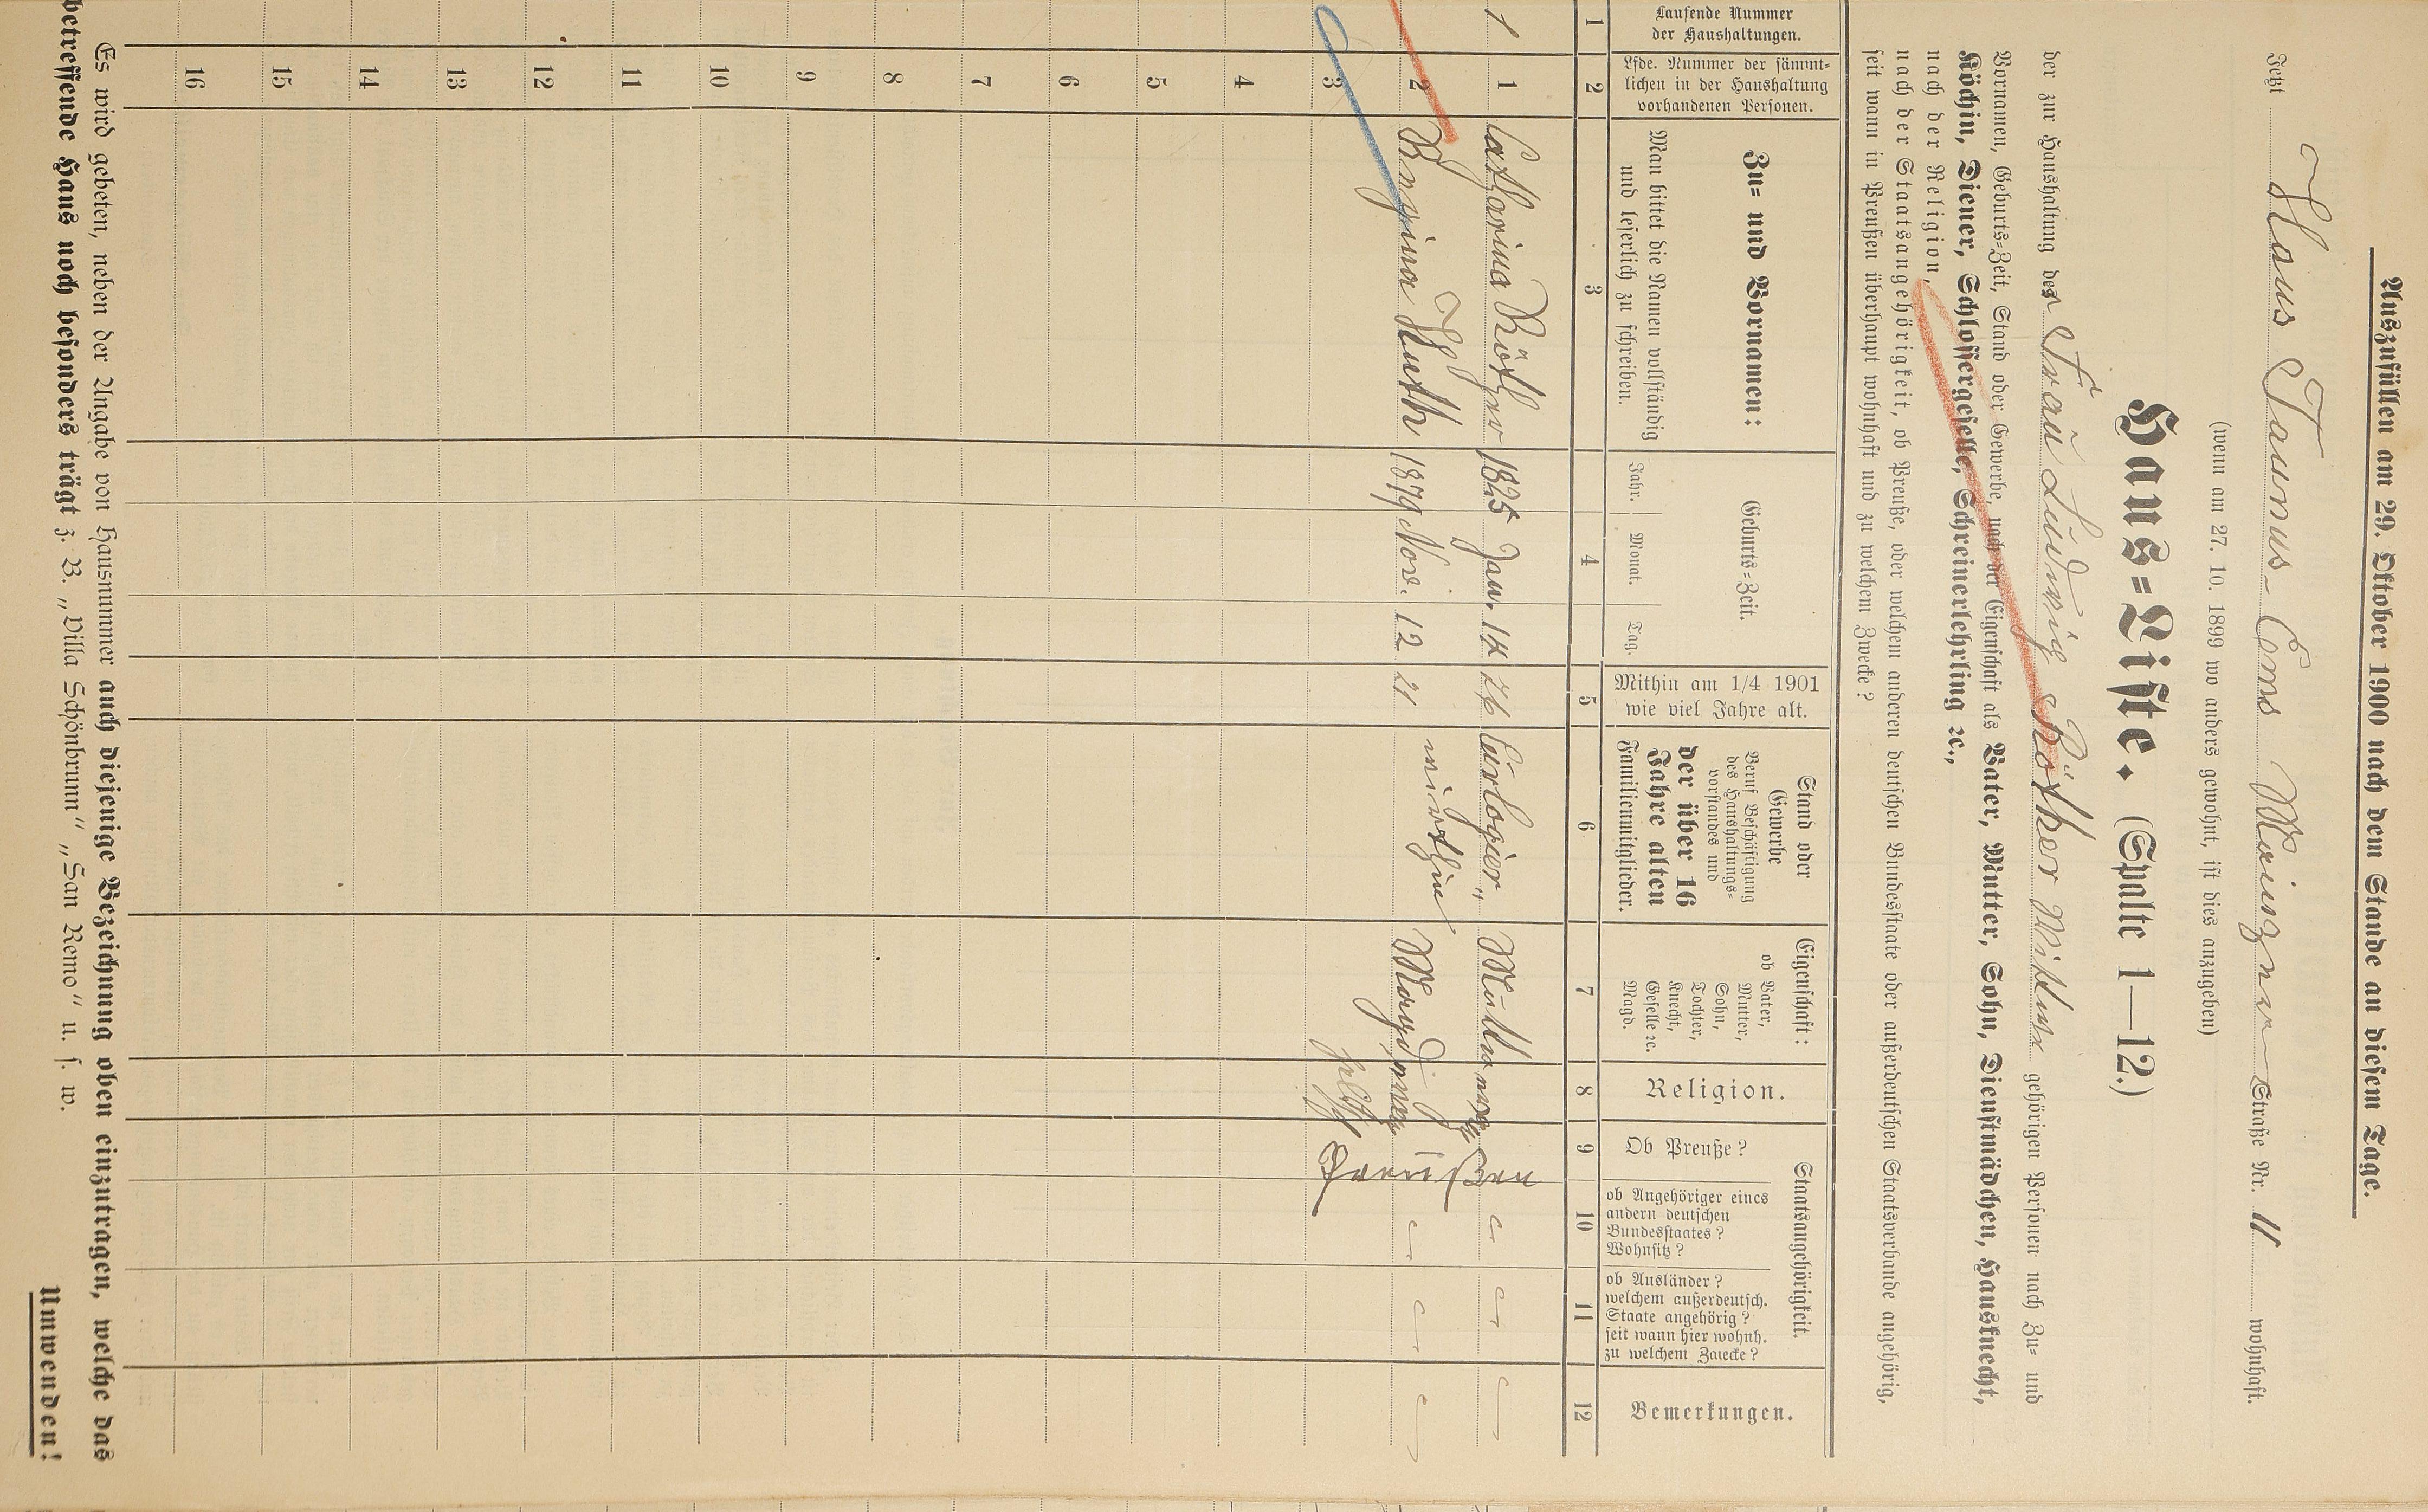 Auszufüllen am 29. Oktober 1900 nach dem Stande an diesem Tage.
Jetzt Haus Taunus Ems Mainzer Straße Nr. 11 wohnhaft.
(wenn am 27. 10. 1899 wo anders gewohnt, ist dies anzugeben)
Haus=Liste. (Spalte 1—12.)
der zur Haushaltung der Frau Ludwig Röther Witwe gehörigen Personen nach Zu= und
Vornamen, Geburts=Zeit, Stand oder Gewerbe, nach der Eigenschaft als Vater, Mutter, Sohn, Dienstmädchen, Hausknecht,
Köchin, Diener, Schlossergeselle, Schreinerlehrling ꝛc.,
nach der Religion,
nach der Staatsangehörigkeit, ob Preuße, oder welchem anderen deutschen Bundesstaate oder außerdeutschen Staatsverbande angehörig,
seit wann in Preußen überhaupt wohnhaft und zu welchem Zwecke?
Laufende Nummer
der Haushaltungen.
Lfde. Nummer der sämmt=
lichen in der Haushaltung
vorhandenen Personen.
Zu= und Vornamen:
Man bittet die Namen vollständig
und leserlich zu schreiben.
Geburts=Zeit.
Jahr. Monat. Tag.
Mithin am 1/4 1901
wie viel Jahre alt.
Stand oder
Gewerbe
Beruf Beschäftigung
des Haushaltungs=
vorstandes und
der über 16
Jahre alten
Familienmitglieder.
Eigenschaft:
ob Vater,
Mutter,
Sohn,
Tochter,
Knecht,
Geselle ꝛc.
Magd.
Religion.
Staatsangehörigkeit.
Ob Preuße?
ob Angehöriger eines
andern deutschen
Bundesstaates?
Wohnsitz?
ob Ausländer?
welchem außerdeutsch.
Staate angehörig?
seit wann hier wohnh.
zu welchem Zwecke?
Bemerkungen.
1 2 3 4 5 6 7 8 9 10 11 12
1 1 Catharina Röther 1825 Jan. 14 76 Curlogier= Mutter Preußen
2 Huth 1879 Nov. 12 21 mietherin Magd
3
4
5
6
7
8
9
10
11
12
13
14
15
16
Es wird gebeten, neben der Angabe von Hausnummer auch diejenige Bezeichnung oben einzutragen, welche das
betreffende Haus noch besonders trägt z. B. „Villa Schönbrunn" „San Remo" u. s. w.
Umwenden!